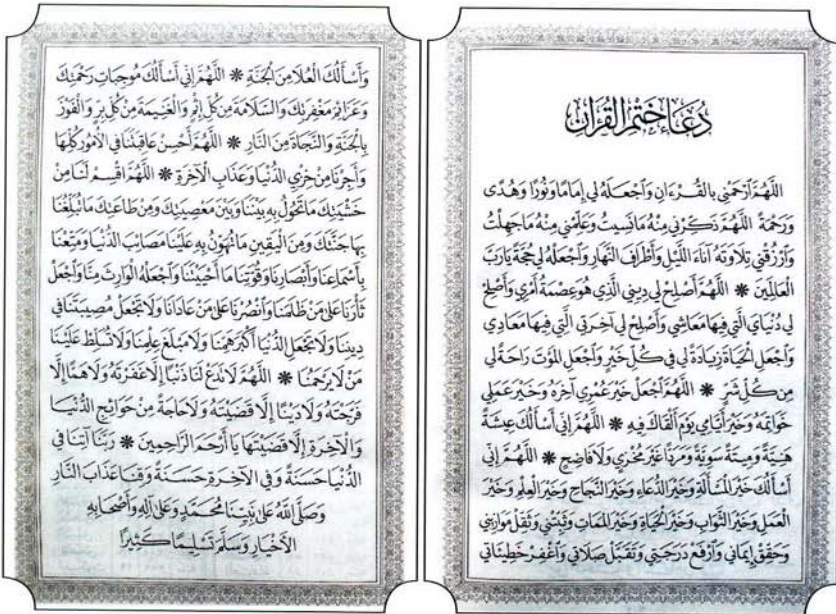 دُعَاءُ خَتْمِ الْقُرْآنِ
اللَّهُمَّ ٱرْحَمْنِي بِالْقُرْءَانِ وَٱجْعَلْهُ لِي إِمَامًا وَنُورًا وَهُدًى
وَرَحْمَةً اللَّهُمَّ ذَكِّرْنِي مِنْهُ مَا نَسِيتُ وَعَلِّمْنِي مِنْهُ مَا جَهِلْتُ
وَٱرْزُقْنِي تِلَاوَتَهُ آنَاءَ اللَّيْلِ وَأَطْرَافَ النَّهَارِ وَٱجْعَلْهُ لِي حُجَّةً يَارَبَّ
الْعَالَمِينَ ❋ اللَّهُمَّ أَصْلِحْ لِي دِينِي الَّذِي هُوَ عِصْمَةُ أَمْرِي وَأَصْلِحْ
لِي دُنْيَايَ الَّتِي فِيهَا مَعَاشِي وَأَصْلِحْ لِي آخِرَتِي الَّتِي فِيهَا مَعَادِي
وَٱجْعَلِ الْحَيَاةَ زِيَادَةً لِي فِي كُلِّ خَيْرٍ وَٱجْعَلِ الْمَوْتَ رَاحَةً لِي
مِن كُلِّ شَرٍّ ❋ اللَّهُمَّ ٱجْعَلْ خَيْرَ عُمْرِي آخِرَهُ وَخَيْرَ عَمَلِي
خَوَاتِمَهُ وَخَيْرَ أَيَّامِي يَوْمَ أَلْقَاكَ فِيهِ ❋ اللَّهُمَّ إِنِّي أَسْأَلُكَ عِيشَةً
هَنِيَّةً وَمِيتَةً سَوِيَّةً وَمَرَدًّا غَيْرَ مُخْزِيٍ وَلَا فَاضِحٍ ❋ اللَّهُمَّ إِنِّي
أَسْأَلُكَ خَيْرَ الْمَسْأَلَةِ وَخَيْرَ الدُّعَاءِ وَخَيْرَ النَّجَاحِ وَخَيْرَ الْعِلْمِ وَخَيْرَ
الْعَمَلِ وَخَيْرَ الثَّوَابِ وَخَيْرَ الْحَيَاةِ وَخَيْرَ الْمَمَاتِ وَثَبِّتْنِي وَثَقِّلْ مَوَازِينِي
وَحَقِّقْ إِيمَانِي وَٱرْفَعْ دَرَجَتِي وَتَقَبَّلْ صَلَاتِي وَٱغْفِرْ خَطِيئَاتِي
وَأَسْأَلُكَ الْعُلَا مِنَ الْجَنَّةِ ❋ اللَّهُمَّ إِنِّي أَسْأَلُكَ مُوجِبَاتِ رَحْمَتِكَ
وَعَزَائِمَ مَغْفِرَتِكَ وَالسَّلَامَةَ مِنْ كُلِّ إِثْمٍ وَالْغَنِيمَةَ مِنْ كُلِّ بِرٍّ وَالْفَوْزَ
بِالْجَنَّةِ وَالنَّجَاةَ مِنَ النَّارِ ❋ اللَّهُمَّ أَحْسِنْ عَاقِبَتَنَا فِي الْأُمُورِ كُلِّهَا
وَأَجِرْنَا مِنْ خِزْيِ الدُّنْيَا وَعَذَابِ الْآخِرَةِ ❋ اللَّهُمَّ اقْسِمْ لَنَا مِنْ
خَشْيَتِكَ مَا تَحُولُ بِهِ بَيْنَنَا وَبَيْنَ مَعْصِيَتِكَ وَمِنْ طَاعَتِكَ مَا تُبَلِّغُنَا
بِهَا جَنَّتَكَ وَمِنَ الْيَقِينِ مَا تُهَوِّنُ بِهِ عَلَيْنَا مَصَائِبَ الدُّنْيَا وَمَتِّعْنَا
بِأَسْمَاعِنَا وَأَبْصَارِنَا وَقُوَّتِنَا مَا أَحْيَيْتَنَا وَٱجْعَلْهُ الْوَارِثَ مِنَّا وَٱجْعَلْ
ثَأْرَنَا عَلَى مَنْ ظَلَمَنَا وَٱنْصُرْنَا عَلَى مَنْ عَادَانَا وَلَا تَجْعَلْ مُصِيبَتَنَا فِي
دِينِنَا وَلَا تَجْعَلِ الدُّنْيَا أَكْبَرَ هَمِّنَا وَلَا مَبْلَغَ عِلْمِنَا وَلَا تُسَلِّطْ عَلَيْنَا
مَنْ لَا يَرْحَمُنَا ❋ اللَّهُمَّ لَا تَدَعْ لَنَا ذَنْبًا إِلَّا غَفَرْتَهُ وَلَا هَمًّا إِلَّا
فَرَّجْتَهُ وَلَا دَيْنًا إِلَّا قَضَيْتَهُ وَلَا حَاجَةً مِنْ حَوَائِجِ الدُّنْيَا
وَالْآخِرَةِ إِلَّا قَضَيْتَهَا يَا أَرْحَمَ الرَّاحِمِينَ ❋ رَبَّنَا آتِنَا فِي
الدُّنْيَا حَسَنَةً وَفِي الْآخِرَةِ حَسَنَةً وَقِنَا عَذَابَ النَّارِ
وَصَلَّى اللَّهُ عَلَى نَبِيِّنَا مُحَمَّدٍ وَعَلَى آلِهِ وَأَصْحَابِهِ
الْأَخْيَارِ وَسَلَّمَ تَسْلِيمًا كَثِيرًا